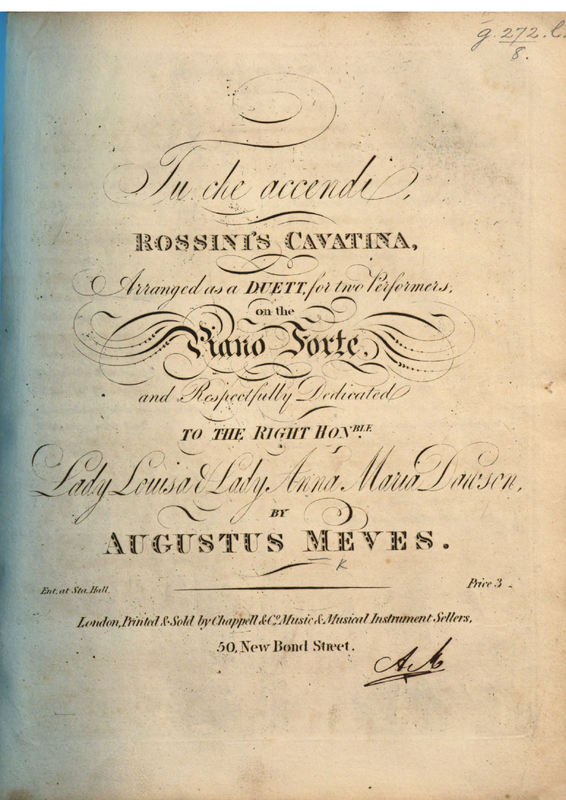 g.272.l.
8.
Tu che accendi,
ROSSINI'S CAVATINA,
Arranged as a DUETT, for two Performers,
on the
Piano Forte,
and Respectfully Dedicated
TO THE RIGHT HONBLE.
Lady Louisa & Lady Anna Maria Dawson,
BY
AUGUSTUS MEVES.
K
Ent. at Sta. Hall.
Price 3
London, Printed & Sold by Chappell & Co. Music & Musical Instrument Sellers,
50, New Bond Street.
AM